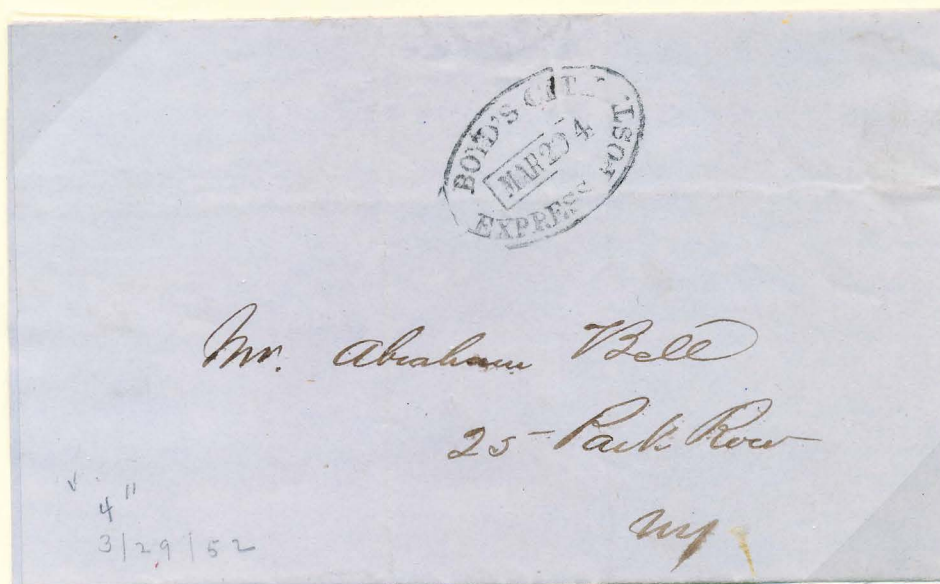 BOYD'S CITY EXPRESS POST.
MAR 29 4
Mr. Abraham Bell
25 Park Row
NY
4"
3/29/52